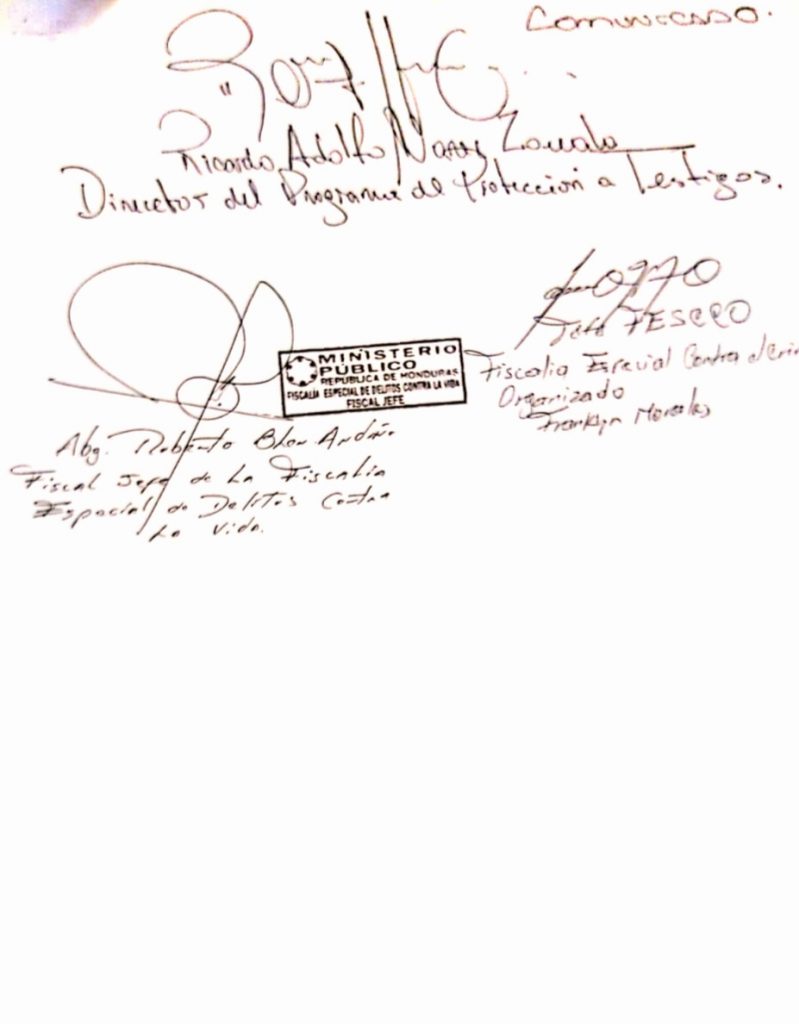 Comunicado.
Ricardo Adolfo
Director del Programa de Protección a Testigos.
Jefe FESCCO
Fiscalia Especial Contra Crimen
Organizado
Franklyn Morales
MINISTERIO
PÚBLICO
REPUBLICA DE HONDURAS
FISCALÍA ESPECIAL DE DELITOS CONTRA LA VIDA
FISCAL JEFE
Abg. Roberto Andino
Fiscal Jefe de La Fiscalia
Especial de Delitos Contra
La Vida.